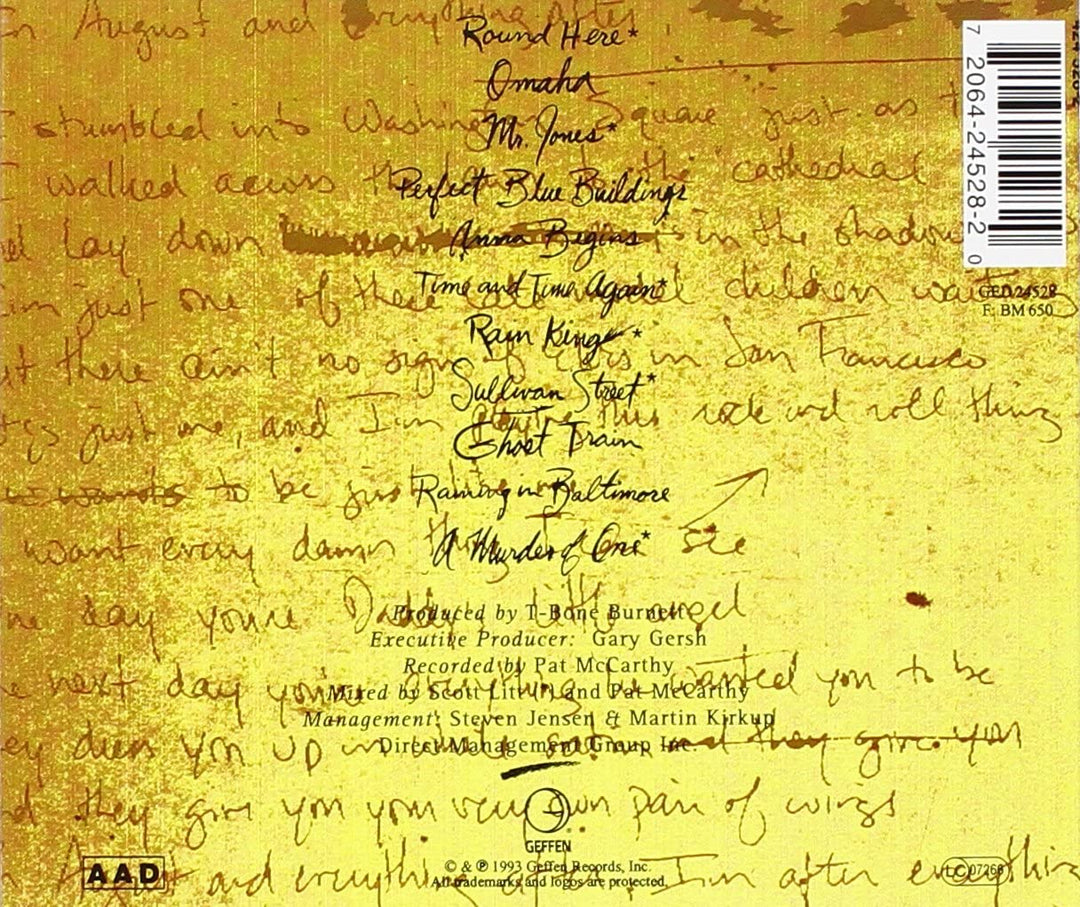 In August and Everything After
Round Here*
Omaha
I stumbled into Washington Square just as t
Mr. Jones*
I walked across the to the cathedral
Perfect Blue Buildings
lay down in the shadow
Anna Begins
Time and Time Again*
I'm just one of these children waiting
Rain King *
there ain't no sign of in San Francisco
Sullivan Street*
just me, and I'm this rock and roll thing
Ghost Train
wants to be just
Raining in Baltimore
want every damn thing I see
A Murder of One*
day you're Daddy's little angel
Produced by T-Bone Burnett
Executive Producer: Gary Gersh
Recorded by Pat McCarthy
next day you're everything he wanted you to be
Mixed by Scott Litt (*) and Pat McCarthy
Management: Steven Jensen & Martin Kirkup
Direct Management Group Inc.
dress you up in and they give you
they give you your very own pair of wings
GEFFEN
© & ℗ 1993 Geffen Records, Inc.
All trademarks and logos are protected.
August and everything I'm after everything
AAD
LC 07266
7 2064-24528-2 0
GED 24528
F: BM 650